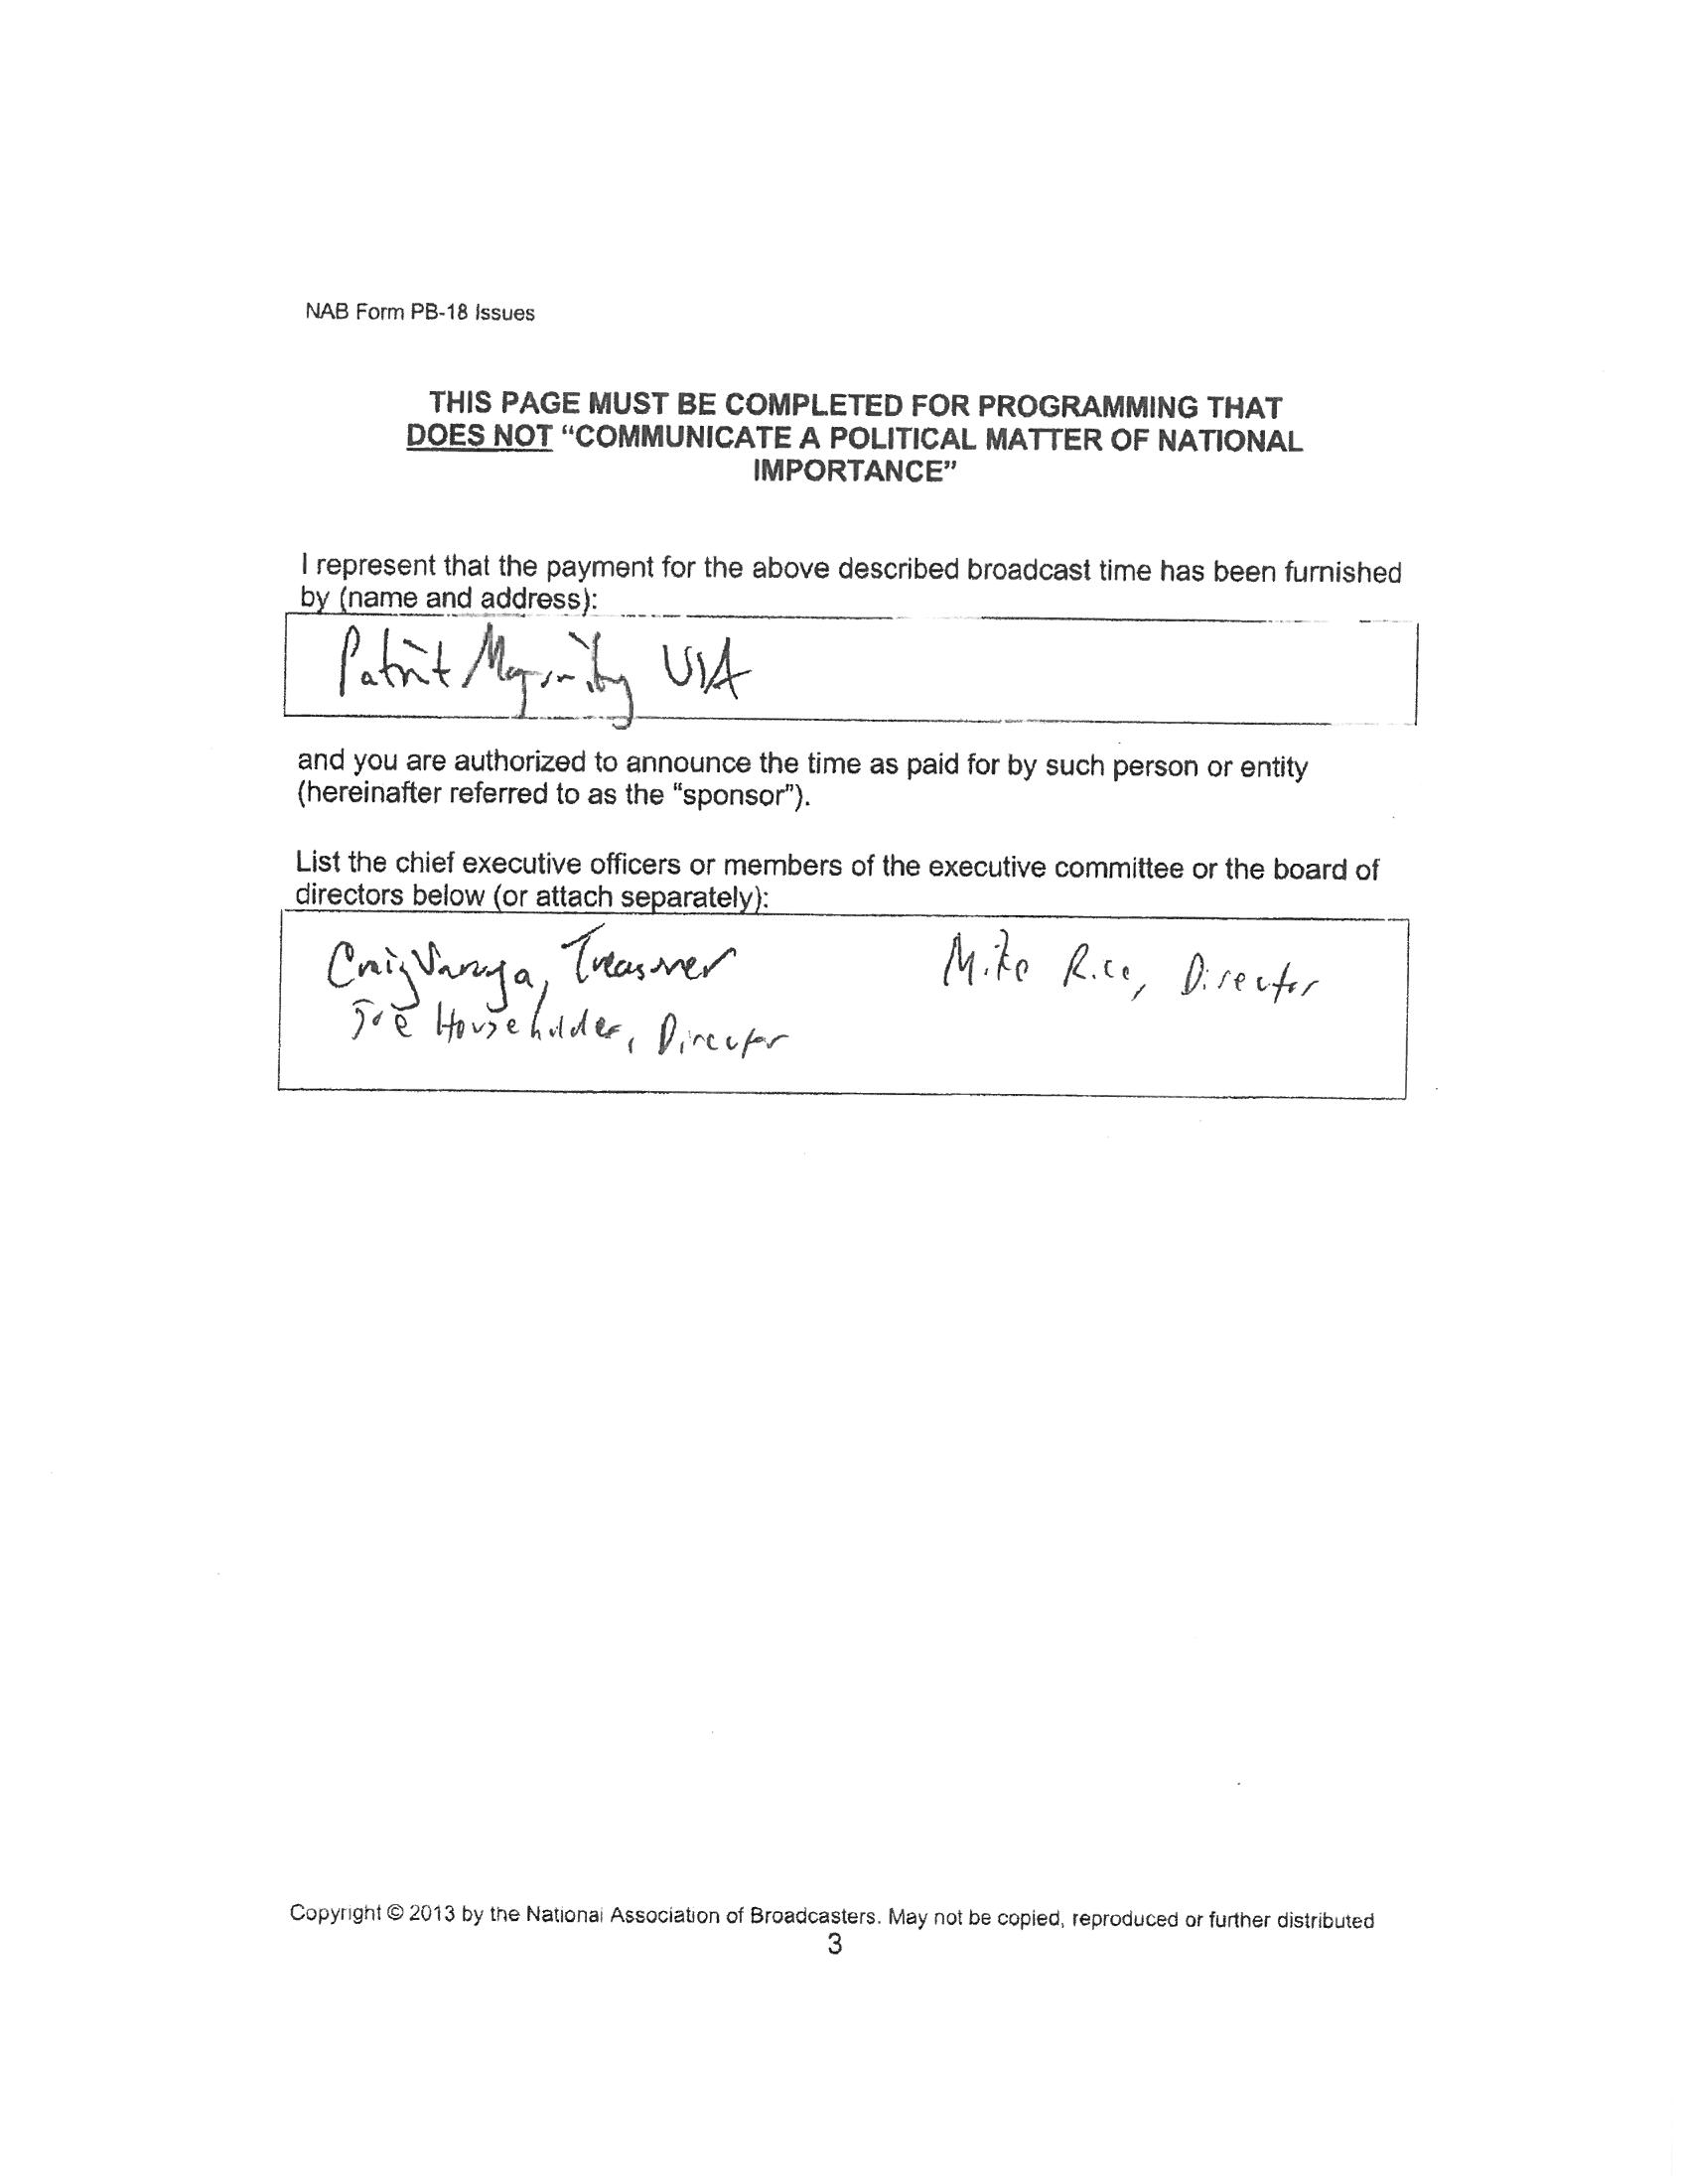 NAB Form PB-18 Issues
THIS PAGE MUST BE COMPLETED FOR PROGRAMMING THAT
DOES NOT “COMMUNICATE A POLITICAL MATTER OF NATIONAL
IMPORTANCE”
I represent that the payment for the above described broadcast time has been furnished
by (name and address):
Patriot Majority USA
and you are authorized to announce the time as paid for by such person or entity
(hereinafter referred to as the “sponsor”).
List the chief executive officers or members of the executive committee or the board of
directors below (or attach separately):
Craig Varoga, Treasurer Mike Rice, Director
Joe Householder, Director
Copyright © 2013 by the National Association of Broadcasters. May not be copied, reproduced or further distributed
3